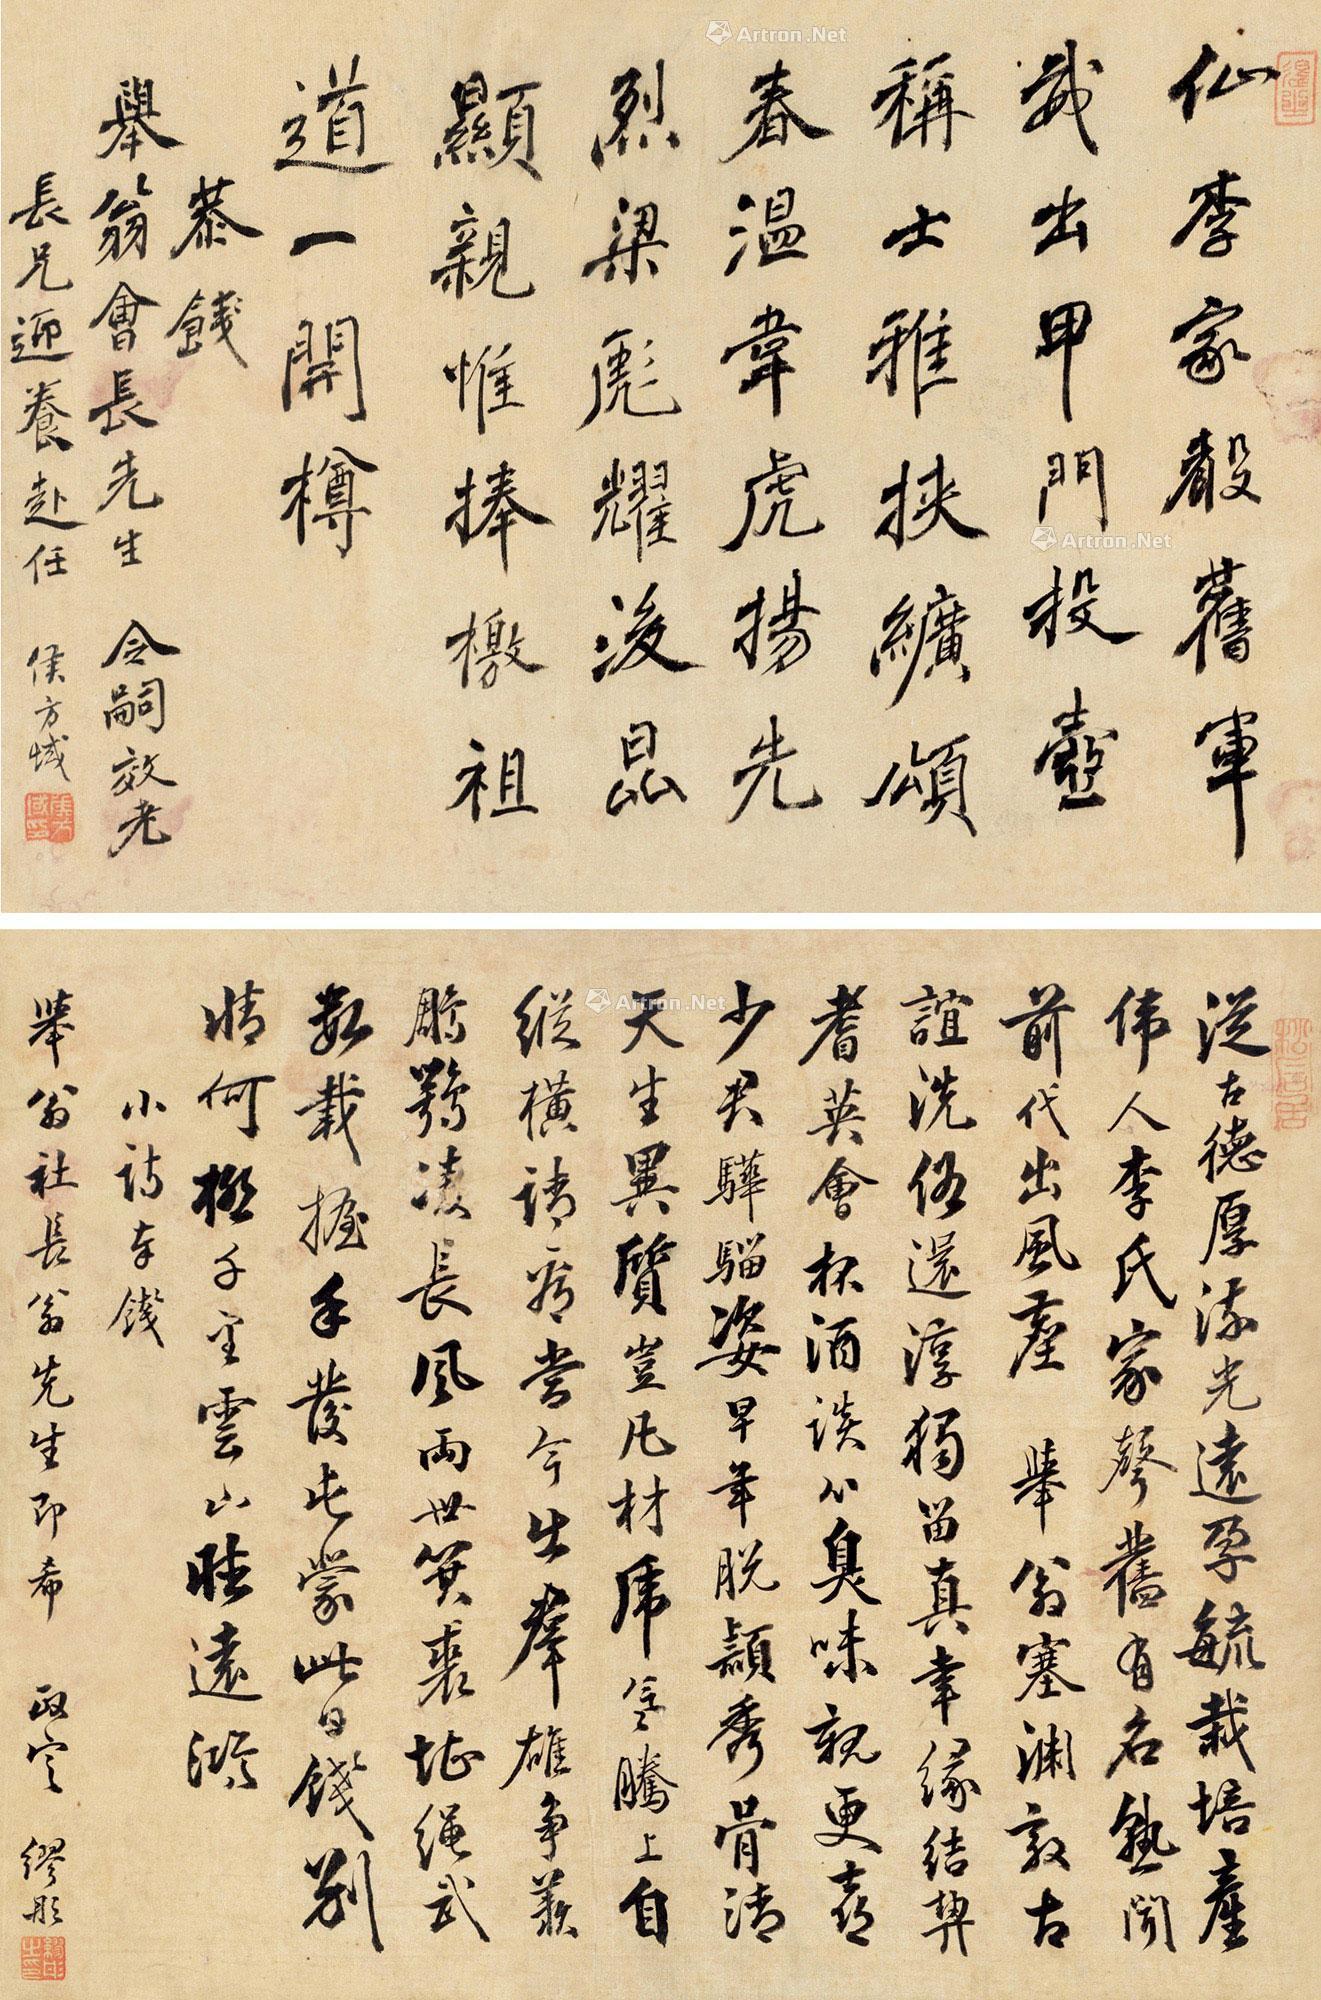 仙李家殽舊軍
武出甲門投壺
稱士雅挾纊頌
春溫韋虎揚先
烈梁彪耀後昆
顯親惟捧檄祖
道一開樽
恭餞
舉翁會長先生 令嗣效老
長兄迎養赴任 侯方域
從古德厚流光遠孕毓栽培產
偉人李氏家聲舊有名熟聞
前代出風塵 舉翁塞淵敦古
誼洗俗還淳獨留真幸緣結契
耆英會杯酒談心臭味親更喜
少君驊騮姿早年脫穎秀骨清
天生異質豈凡材席 騰上自
縱橫請看當今出群雄爭羨
鵬鶚凌長風兩世箕裘堪繩武
數載握手發屯蒙此日餞別
情何極千里雲山睦遠鴻
小詩奉餞
舉翁社長翁先生即希 政定 繆彤
Artron.Net
Artron.Net
Artron.Net